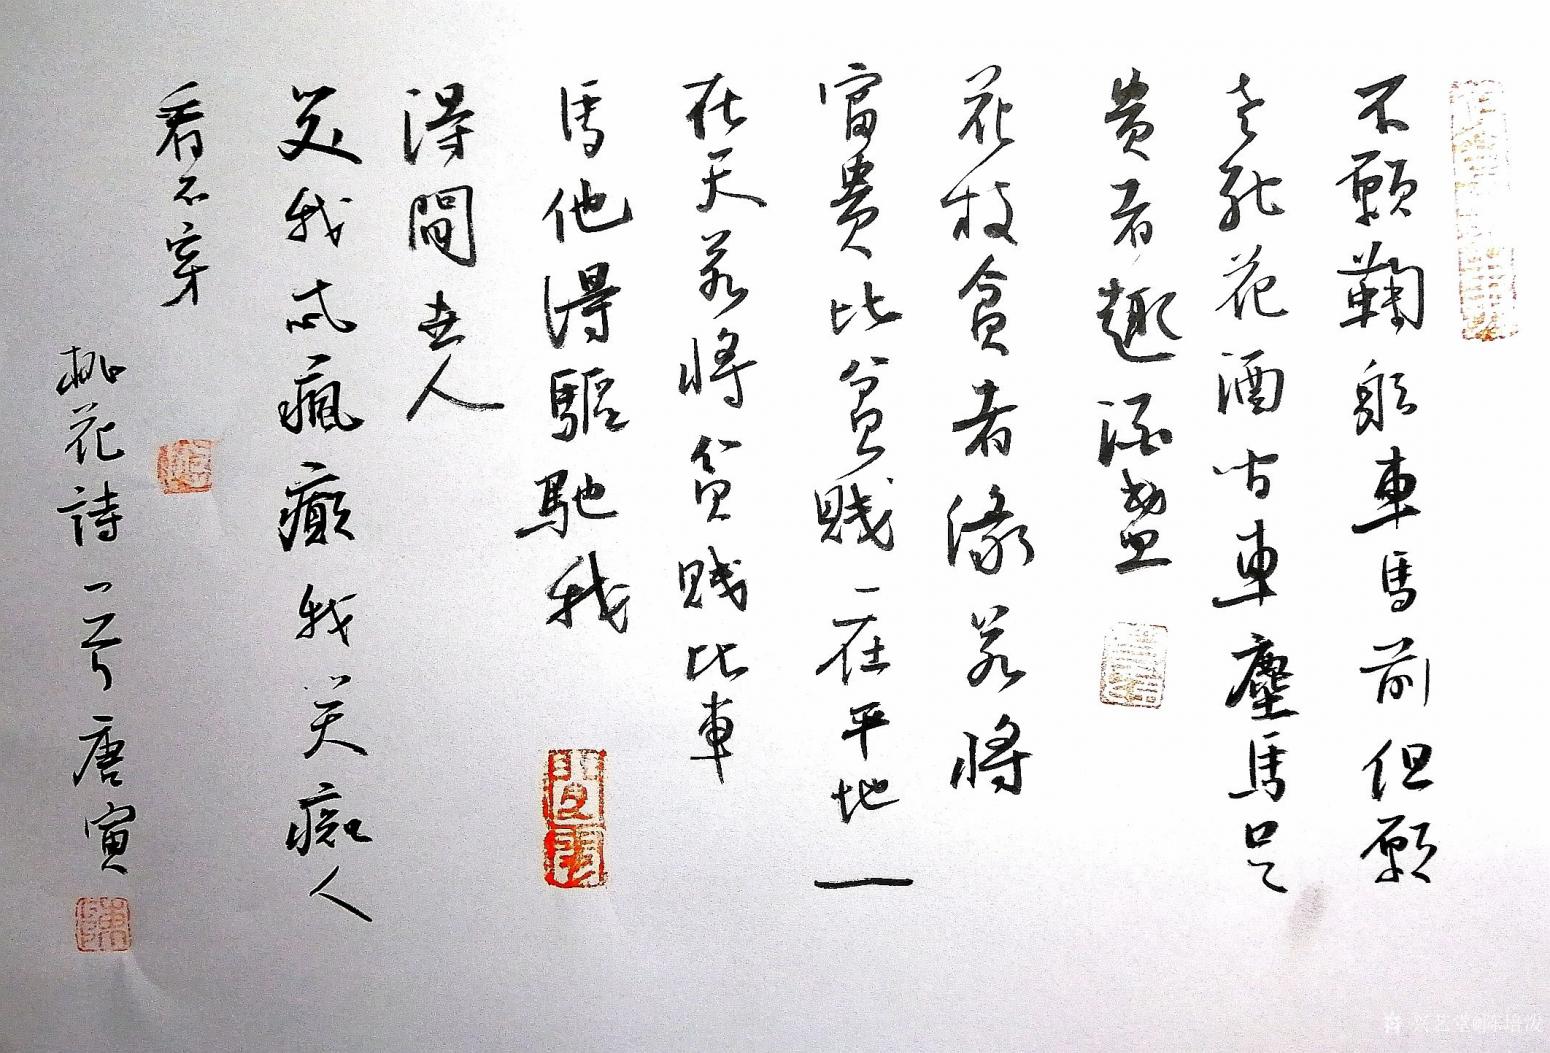 不願鞠躬車馬前但願
老死花酒間車塵馬足
貴者趣酒盞
花枝貧者緣若將
富貴比貧賤一在平地一
在天若將貧賤比車
馬他得驅馳我
得間世人
笑我忒瘋癲我笑痴人
看不穿
桃花詩一首唐寅
兴艺堂@陈培泼